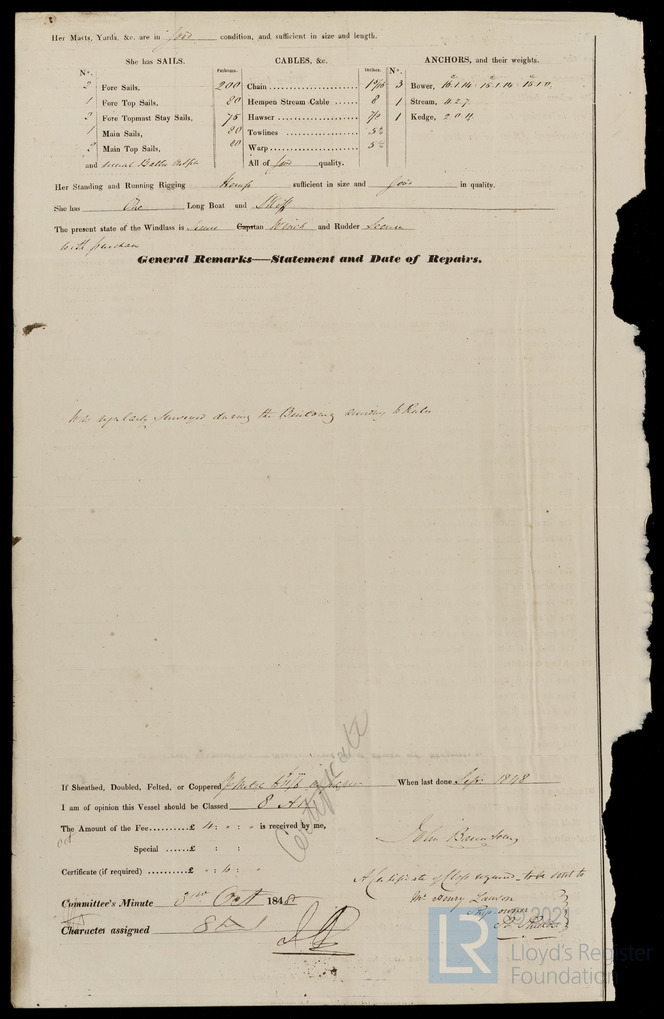 Her Masts, Yards, &c. are in good condition, and sufficient in size and length.
She has SAILS.
CABLES, &c.
ANCHORS, and their weights.
N°.
Fathoms.
Inches.
N°.
2 Fore Sails,
1 Fore Top Sails,
2 Fore Topmast Stay Sails,
1 Main Sails,
2 Main Top Sails,
and
200 Chain
80 Hempen Stream Cable ...... 8
75 Hawser
80 Towlines
80 Warp
All of good quality.
3 Bower,
1 Stream, 4.2.7
1 Kedge, 2.0.11
Her Standing and Running Rigging Hemp sufficient in size and good in quality.
She has One Long Boat and Skiff
The present state of the Windlass is Capstan Winch and Rudder
with
General Remarks—Statement and Date of Repairs.
Was regularly Surveyed during the Building according to Rules
Certificate
If Sheathed, Doubled, Felted, or Coppered When last done Sepr 1848
I am of opinion this Vessel should be Classed 8 A1
The Amount of the Fee...........£ 4 : " : " is received by me,
Special ......£ : :
Certificate (if required) ..........£ : :
John
A Certificate of Class required - to be sent to
Mr Henry Lawson
Ship owner
Committee's Minute 31st Oct 1848
Character assigned 8 A 1
LR
Lloyd's Register
Foundation